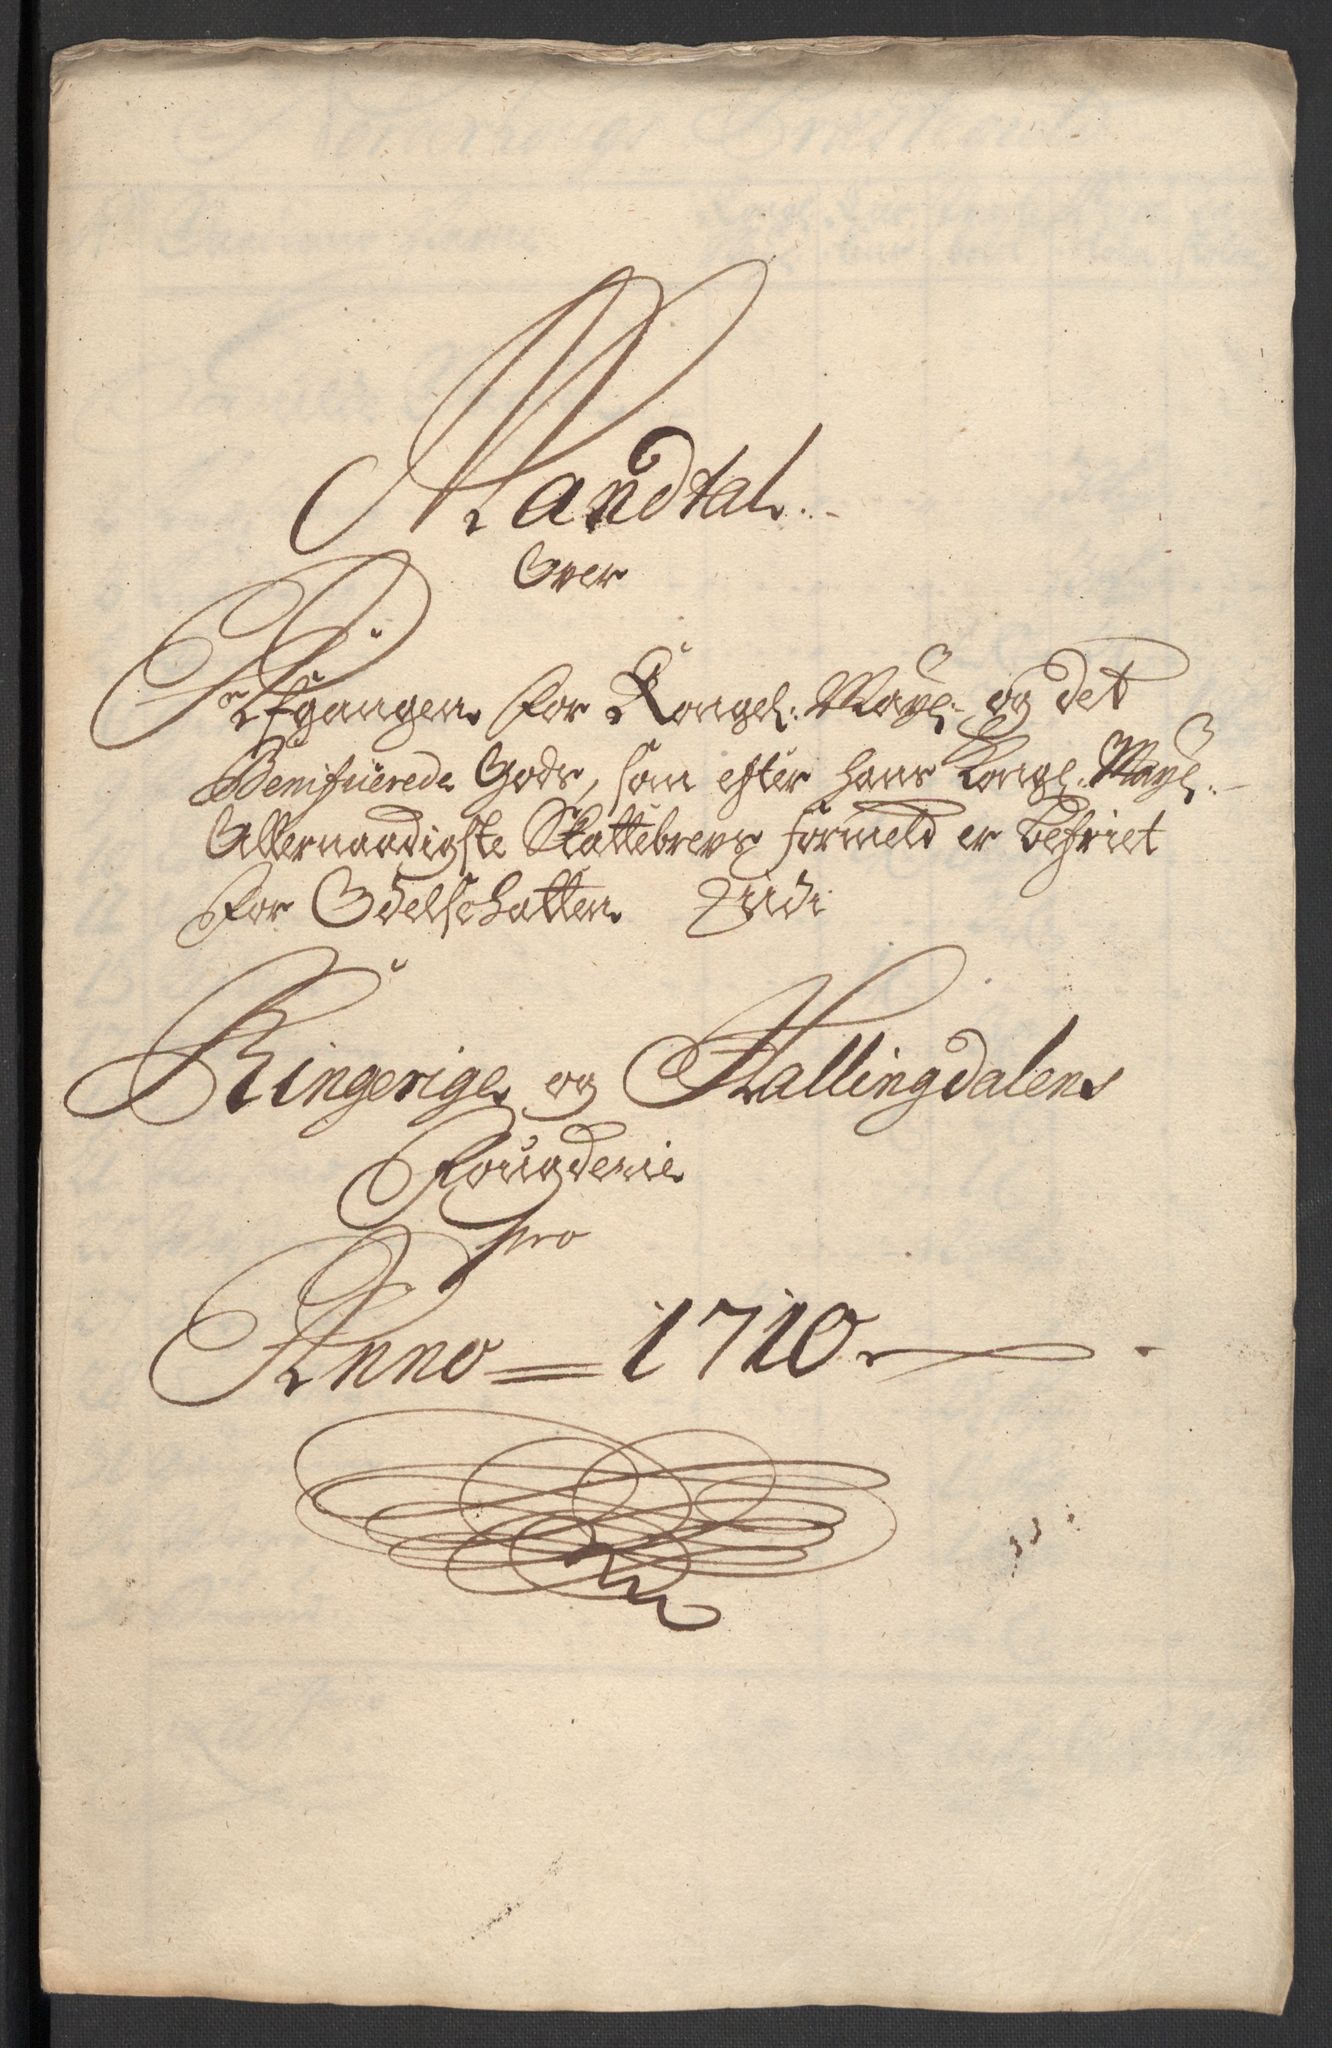 Mandtal.
Over
Afgangen for Kongel: Mayt: og det
Benificerede Gods, som efter hans Kongl: Mayt:
Allernaadigste Skattebrevs formeld er befriet
for Odelschatten Udi
Ringerige og Hallingdalens
Fougderie
pro
Anno = 1710